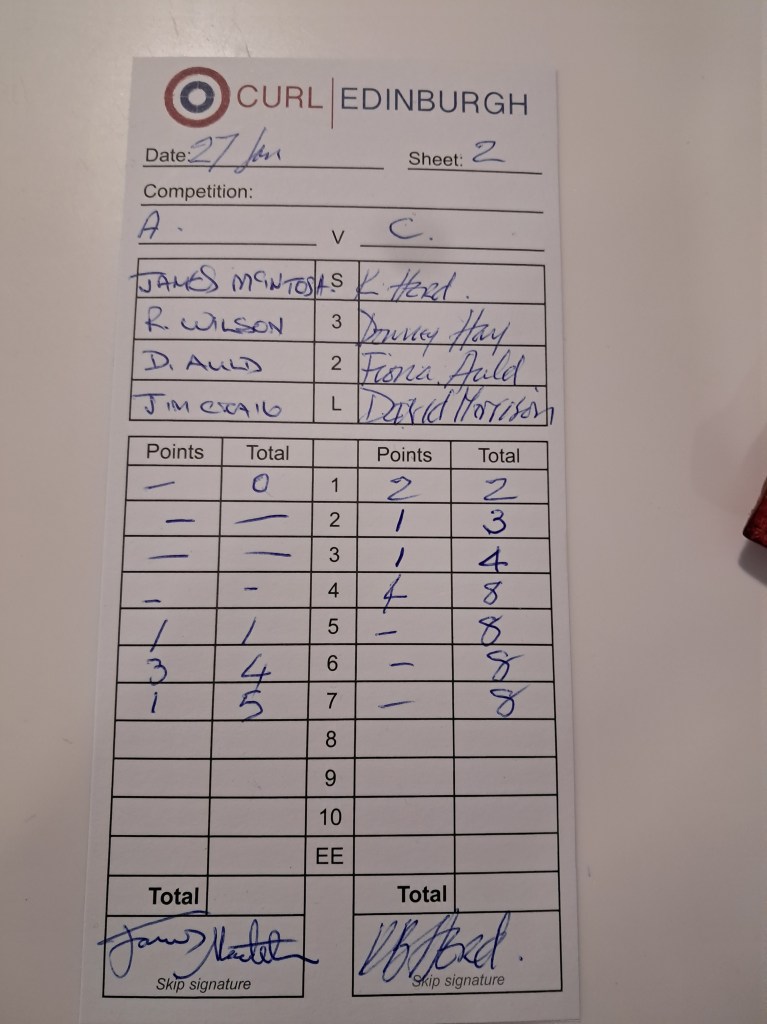 CURL | EDINBURGH
Date: 27 Jan Sheet: 2
Competition:
A. V C.
JAMES MCINTOSH S K Herd.
R. WILSON 3 Hay
D. AULD 2 Fiona Auld
JIM CRAIG L David Morrison
Points Total Points Total
— 0 1 2 2
— — 2 1 3
— — 3 1 4
- - 4 4 8
1 1 5 - 8
3 4 6 - 8
1 5 7 - 8
8
9
10
EE
Total Total
Skip signature Skip signature